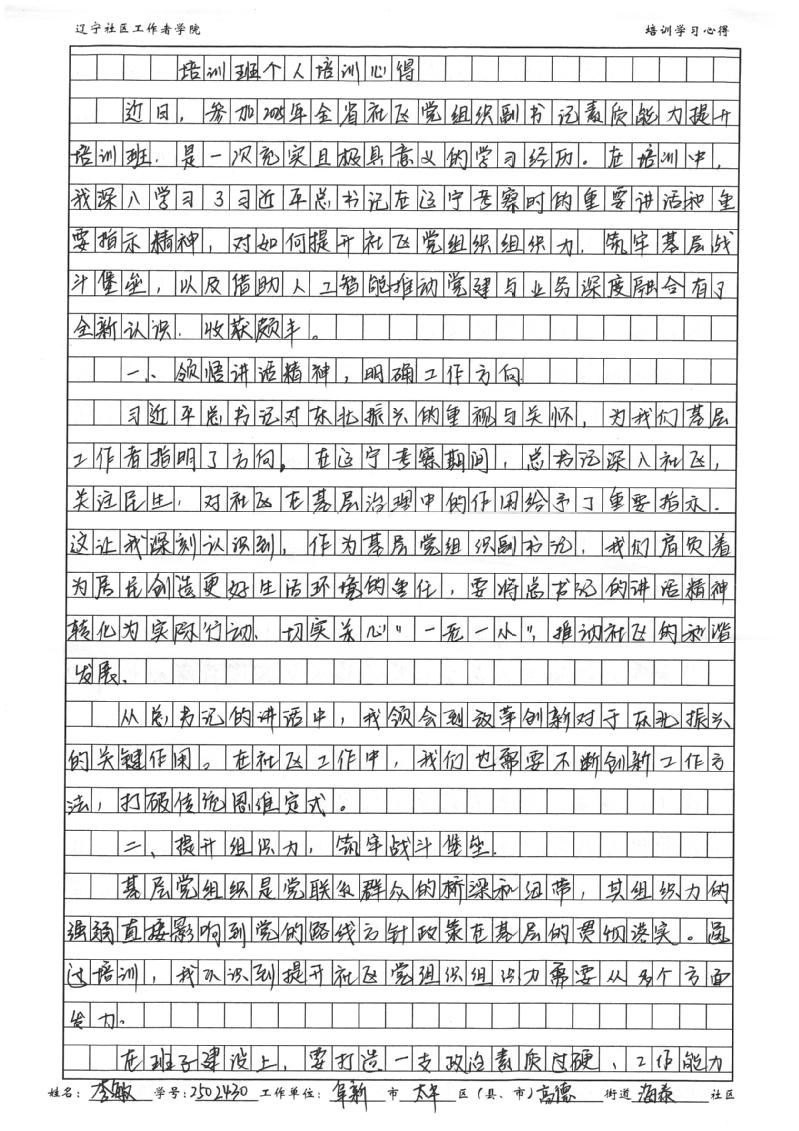 辽宁社区工作者学院 培训学习心得
培训班个人培训心得
近日，参加2025年全省社区党组织副书记素质能力提升
培训班，是一次充实且极具意义的学习经历。在培训中，
我深入学习了习近平总书记在辽宁考察时的重要讲话和重
要指示精神，对如何提升社区党组织组织力，筑牢基层战
斗堡垒，以及借助人工智能推动党建与业务深度融合有了
全新认识，收获颇丰。
一、领悟讲话精神，明确工作方向
习近平总书记对东北振兴的重视与关怀，为我们基层
工作者指明了方向。在辽宁考察期间，总书记深入社区，
关注民生，对社区在基层治理中的作用给予了重要指示。
这让我深刻认识到，作为基层党组织副书记，我们肩负着
为居民创造更好生活环境的重任，要将总书记的讲话精神
转化为实际行动，切实关心“一老一小”，推动社区的和谐
发展。
从总书记的讲话中，我领会到改革创新对于东北振兴
的关键作用。在社区工作中，我们也需要不断创新工作方
法，打破传统思维定式。
二、提升组织力，筑牢战斗堡垒。
基层党组织是党联系群众的桥梁和纽带，其组织力的
强弱直接影响到党的路线方针政策在基层的贯彻落实。通
过培训，我认识到提升社区党组织组织力需要从多个方面
发力。
在班子建设上，要打造一支政治素质过硬、工作能力
姓名：李敏 学号：2502430 工作单位：阜新 市 太平 区（县、市）高德 街道 海泰 社区